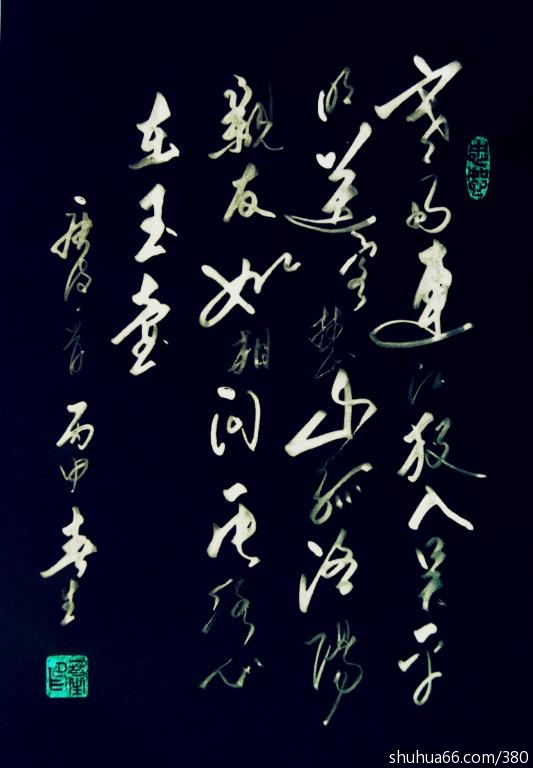 寒雨連江夜入吴平
明送客楚山孤洛陽
親友如相问一片冰心
在玉壶
唐诗一首 丙申 春生
shuhua66.com/380